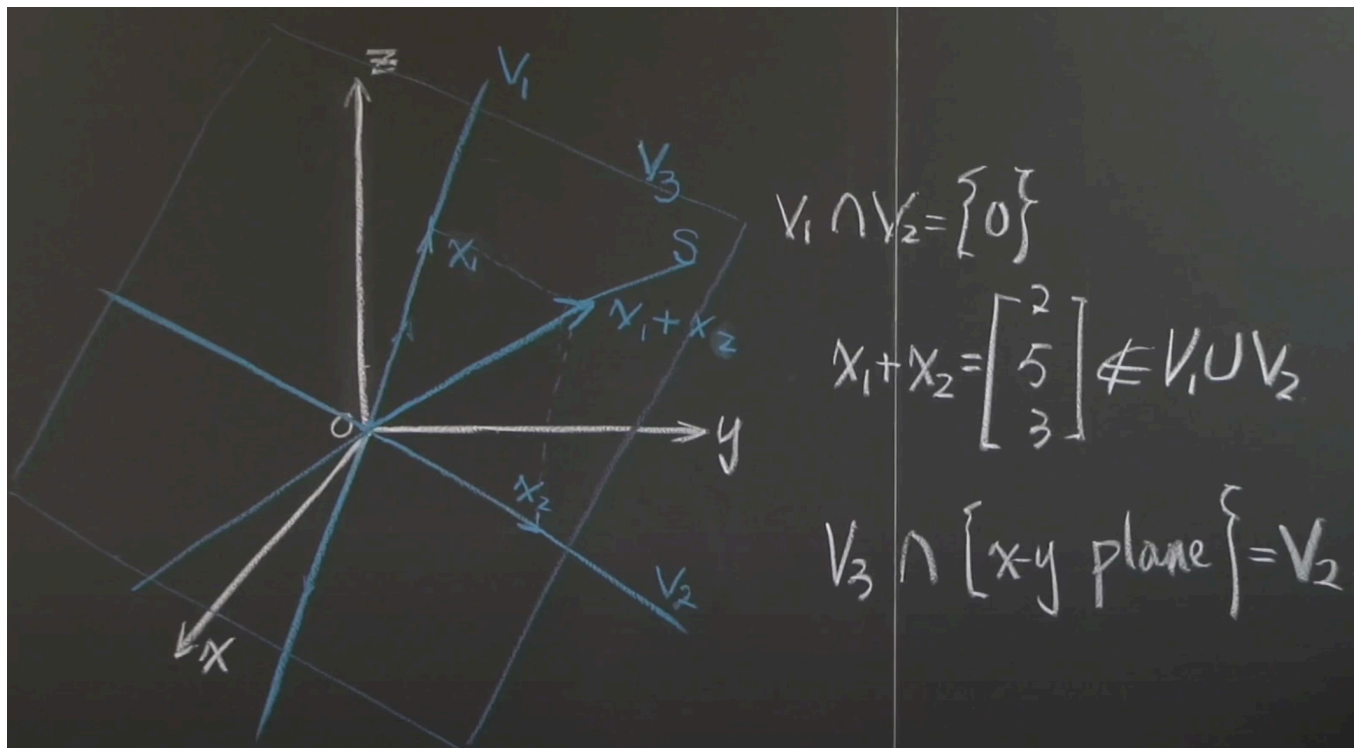 z
V₁
V₃
S
x₁
x₁ + x₂
0
y
x₂
V₂
x
V₁ ∩ V₂ = {0}
x₁ + x₂ = [2
5
3] ∉ V₁ ∪ V₂
V₃ ∩ {x-y plane} = V₂